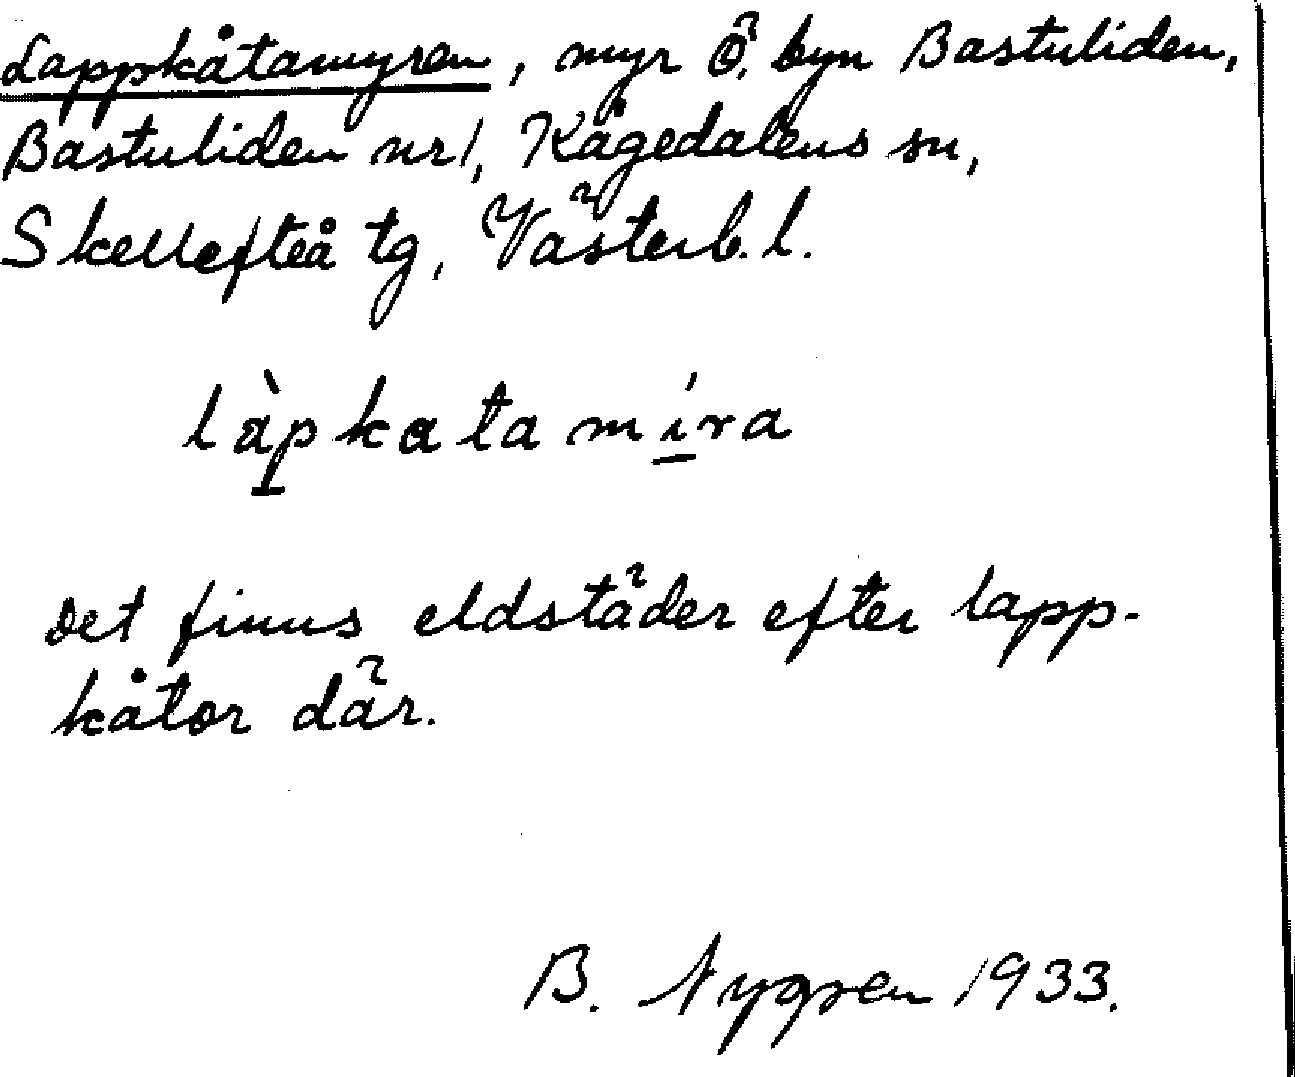 Lappkåtamyren, myr ö. byn Bastuliden,
Bastuliden nr 1, Kågedalens sn,
Skellefteå tg, Västerb. l.
làpkatamíra
Det finns eldstäder efter lapp-
kåtor där.
B. Nygren 1933.